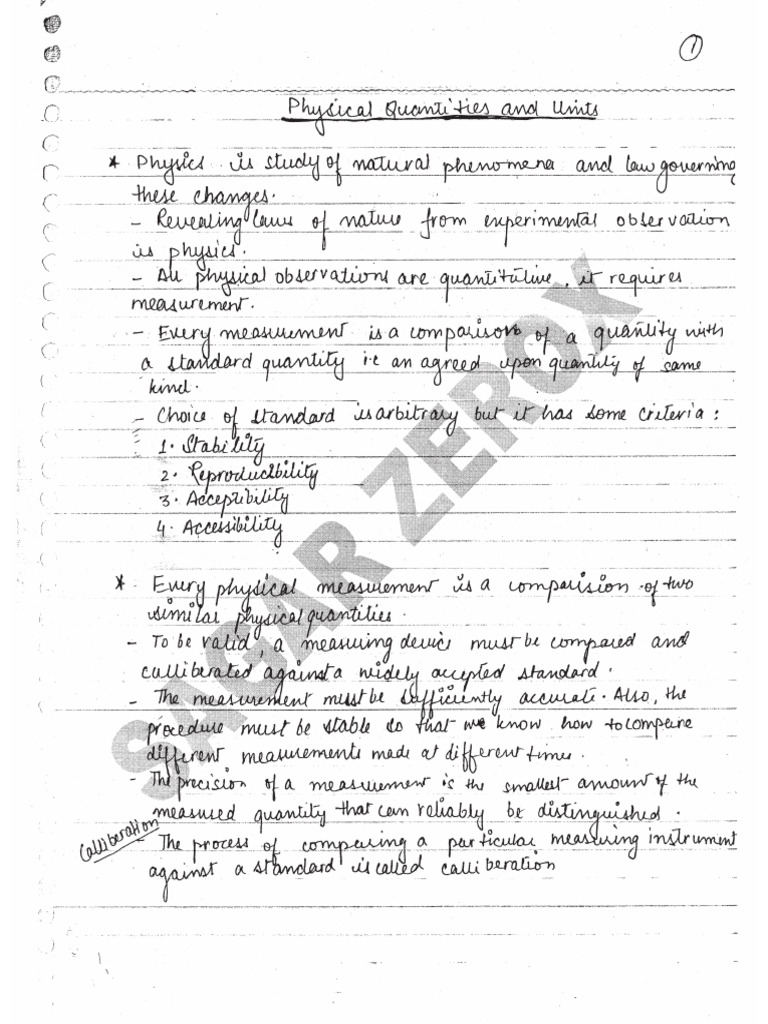 1
Physical Quantities and Units
* Physics is study of natural phenomena and law governing
these changes.
- Revealing laws of nature from experimental observation
is physics.
- All physical observations are quantitative, it requires
measurement.
- Every measurement is a comparison of a quantity with
a standard quantity i.e an agreed upon quantity of same
kind.
- Choice of standard is arbitrary but it has some criteria:
1. Stability
2. Reproducibility
3. Acceptibility
4. Accessibility
* Every physical measurement is a comparision of two
similar physical quantities.
- To be valid, a measuring device must be compared and
calliberated against a widely accepted standard.
- The measurement must be sufficiently accurate. Also, the
procedure must be stable so that we know how to compare
different measurements made at different times.
- The precision of a measurement is the smallest amount of the
measured quantity that can reliably be distinguished.
Calliberation
- The process of comparing a particular measuring instrument
against a standard is called calliberation
SAGAR ZEROX